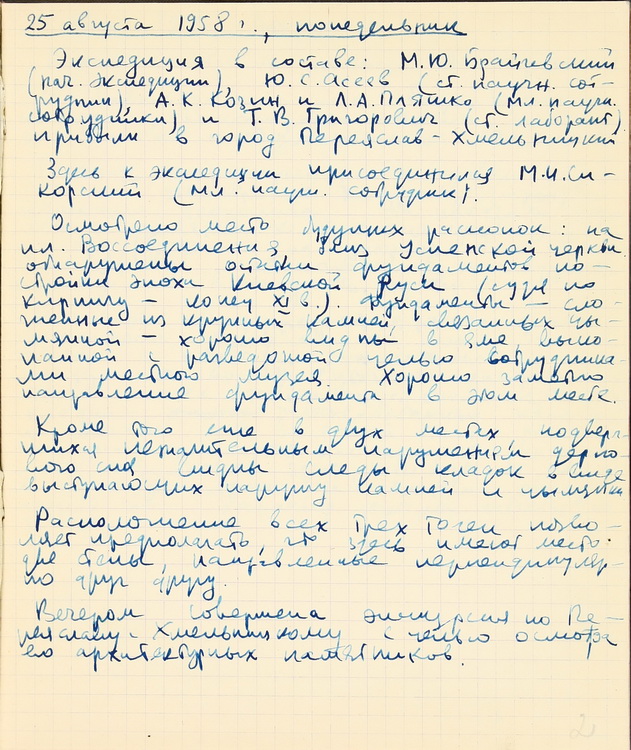 25 августа 1958 г., понедельник
Экспедиция в составе: М.Ю. Брайчевский
(нач. экспедиции), Ю.С. Асеев (ст. научн. сот-
рудник), А.К. Козин и Л.А. Пляшко (мл. научн.
сотрудники) и Т.В. Григорович (ст. лаборант)
прибыли в город Переяслав-Хмельницкий
Здесь к экспедиции присоединился М.И. Си-
корский (мл. научн. сотрудник).
Осмотрено место будущих раскопок: на
пл. Воссоединения близ Успенской церкви
обнаружены остатки фундаментов по-
стройки эпохи Киевской Руси (судя по
кирпичу – конец XI в.). Фундаменты – сло-
женные из крупных камней, связанных цы-
мянкой – хорошо видны в яме, выко-
панной с разведочной целью сотрудника-
ми местного музея. Хорошо заметно
направление фундамента в этом месте.
Кроме того еще в двух местах подверг-
шихся незначительным нарушениям дерно-
вого слоя видны следы кладок в виде
выступающих наружу камней и цымянки
Расположение всех трех точек позво-
ляет предполагать, что здесь имеют место
две стены, направленные перпендикуляр-
но друг другу.
Вечером совершена экскурсия по Пе-
реяславу-Хмельницкому с целью осмотра
его архитектурных памятников.
2